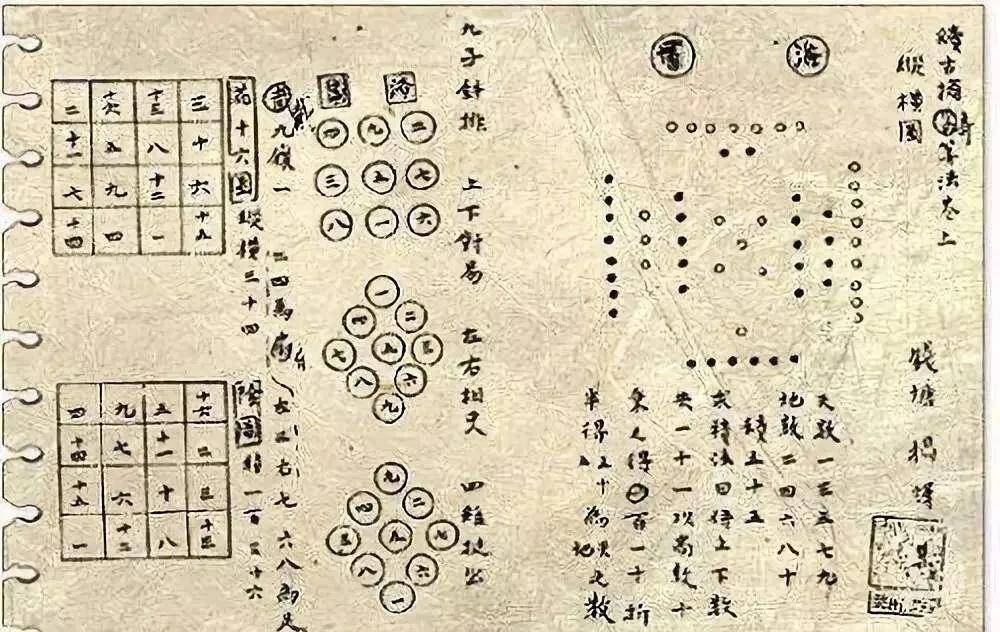 續古摘奇算法卷上
縱橫圖
錢塘 楊輝
河圖
天數一三五七九
地數二四六八十
積五十五
求積法曰併上下數
共一十一以高數十
乘之得百一十折
半得五十五為天地之數
九子斜排 上下對易 左右相更 四維挺出
洛書
四 九 二
三 五 七
八 一 六
一
四 二
七 五 三
八 六
九
九
四 二
三 五 七
八 六
一
戴九履一 二四為肩 左三右七 六八為足
花十六圖 縱橫三十四
二 十六 十三 三
十一 五 八 十
七 九 十二 六
十四 四 一 十五
陰圖 一百三十六
四 九 五 十六
十四 七 十一 二
十五 六 十 三
一 十二 八 十三